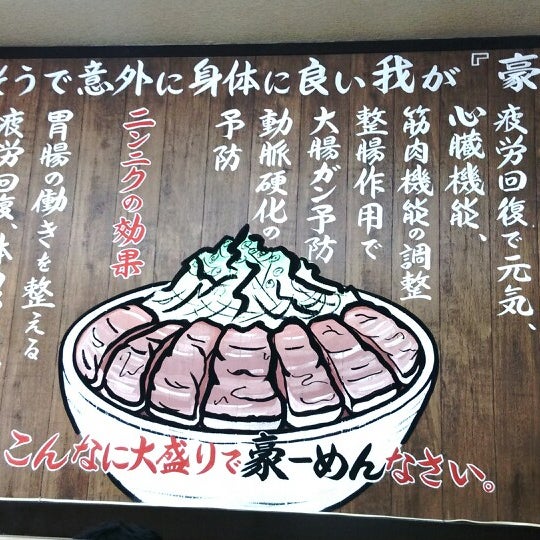 そうで意外に身体に良い我が『豪
疲労回復で元気、
心臓機能、
筋肉機能の調整
整腸作用で
大腸ガン予防
動脈硬化の
予防
ニンニクの効果
胃腸の働きを整える
疲労回復、体
こんなに大盛りで豪ーめんなさい。